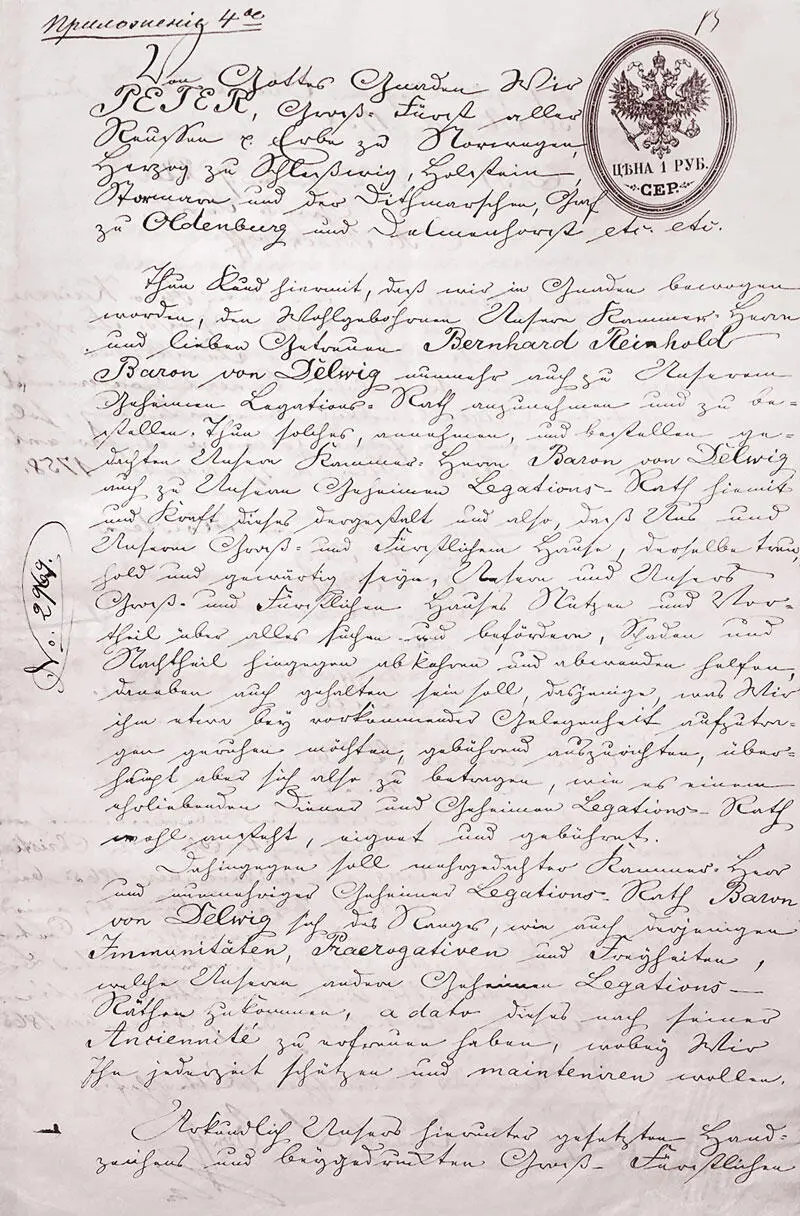 Приложенiе 4ое
13
Von Gottes Gnaden Wir
PETER, Groß-Fürst aller
Reussen p. Erbe zu Norwegen,
Herzog zu Schleßwig, Holstein,
Stormarn, und der Dithmarschen, Graf
zu Oldenburg und Delmenhorst etc. etc.
ЦѢНА 1 РУБ.
СЕР.
Thun Kund hiermit, daß wir in Gnaden bewogen
worden, den Wohlgebohrnen Unsern Kammer-Herrn
und lieben Getreuen Bernhard Reinhold
Baron von Delwig nunmehr auch zu Unserem
Geheimen Legations-Rath anzunehmen und zu be-
stellen. Thun solches, annehmen, und bestellen ge-
dachten Unsern Kammer-Herrn Baron von Delwig
auch zu Unsern Geheimen Legations-Rath hiemit
und Kraft dieses dergestalt und also, daß Uns und
Unserm Groß- und Fürstlichem Hause, derselbe treu,
hold und gewärtig seyn, Unsern und Unsers
Groß- und Fürstlichen Hauses Nutzen und Vor-
theil über alles suchen und befördern, Schaden und
Nachtheil hingegen abkehren und abwenden helfen,
daneben auch gehalten sein soll, dasjenige, was Wir
ihm etwa bey vorkommender Gelegenheit aufzutra-
gen geruhen möchten, gebührend auszurichten, über-
haupt aber sich also zu betragen, wie es einem
ehrliebenden Diener und Geheimen Legations-Rath
wohl ansteht, eignet und gebühret.
Dahingegen soll mehrgedachter Kammer-Herr
und nunmehriger Geheimer Legations-Rath Baron
von Delwig sich des Ranges, wie auch derjenigen
Immunitäten, Praerogativen und Freyheiten,
welche Unseren andern Geheimen Legations-
Räthen zukommen, a dato dieses nach seiner
Ancienneté zu erfreuen haben, wobey Wir
Ihn jederzeit schützen und mainteniren wollen.
Urkundlich Unsers hierunter gesetzten Hand-
zeichens und beygedruckten Groß-Fürstlichen
1758.
No. 2969.